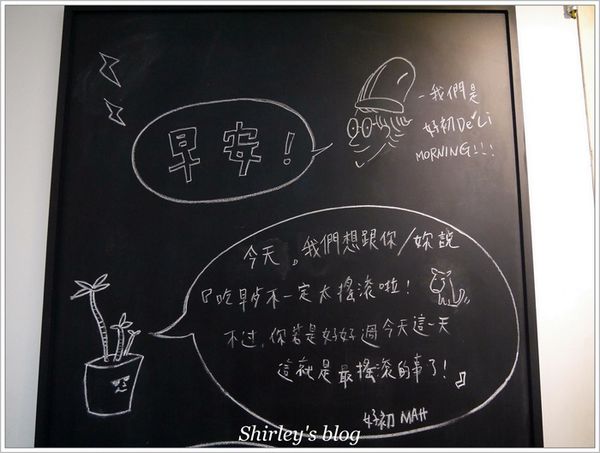 早安！
-我們是
好初De'Li
MORNING!!!
今天，我們想跟你/妳說
『吃早点不一定太搖滾啦！
不过，你若是好好過今天這一天
這就是最搖滾的事了！』
好初 MAH
Shirley's blog